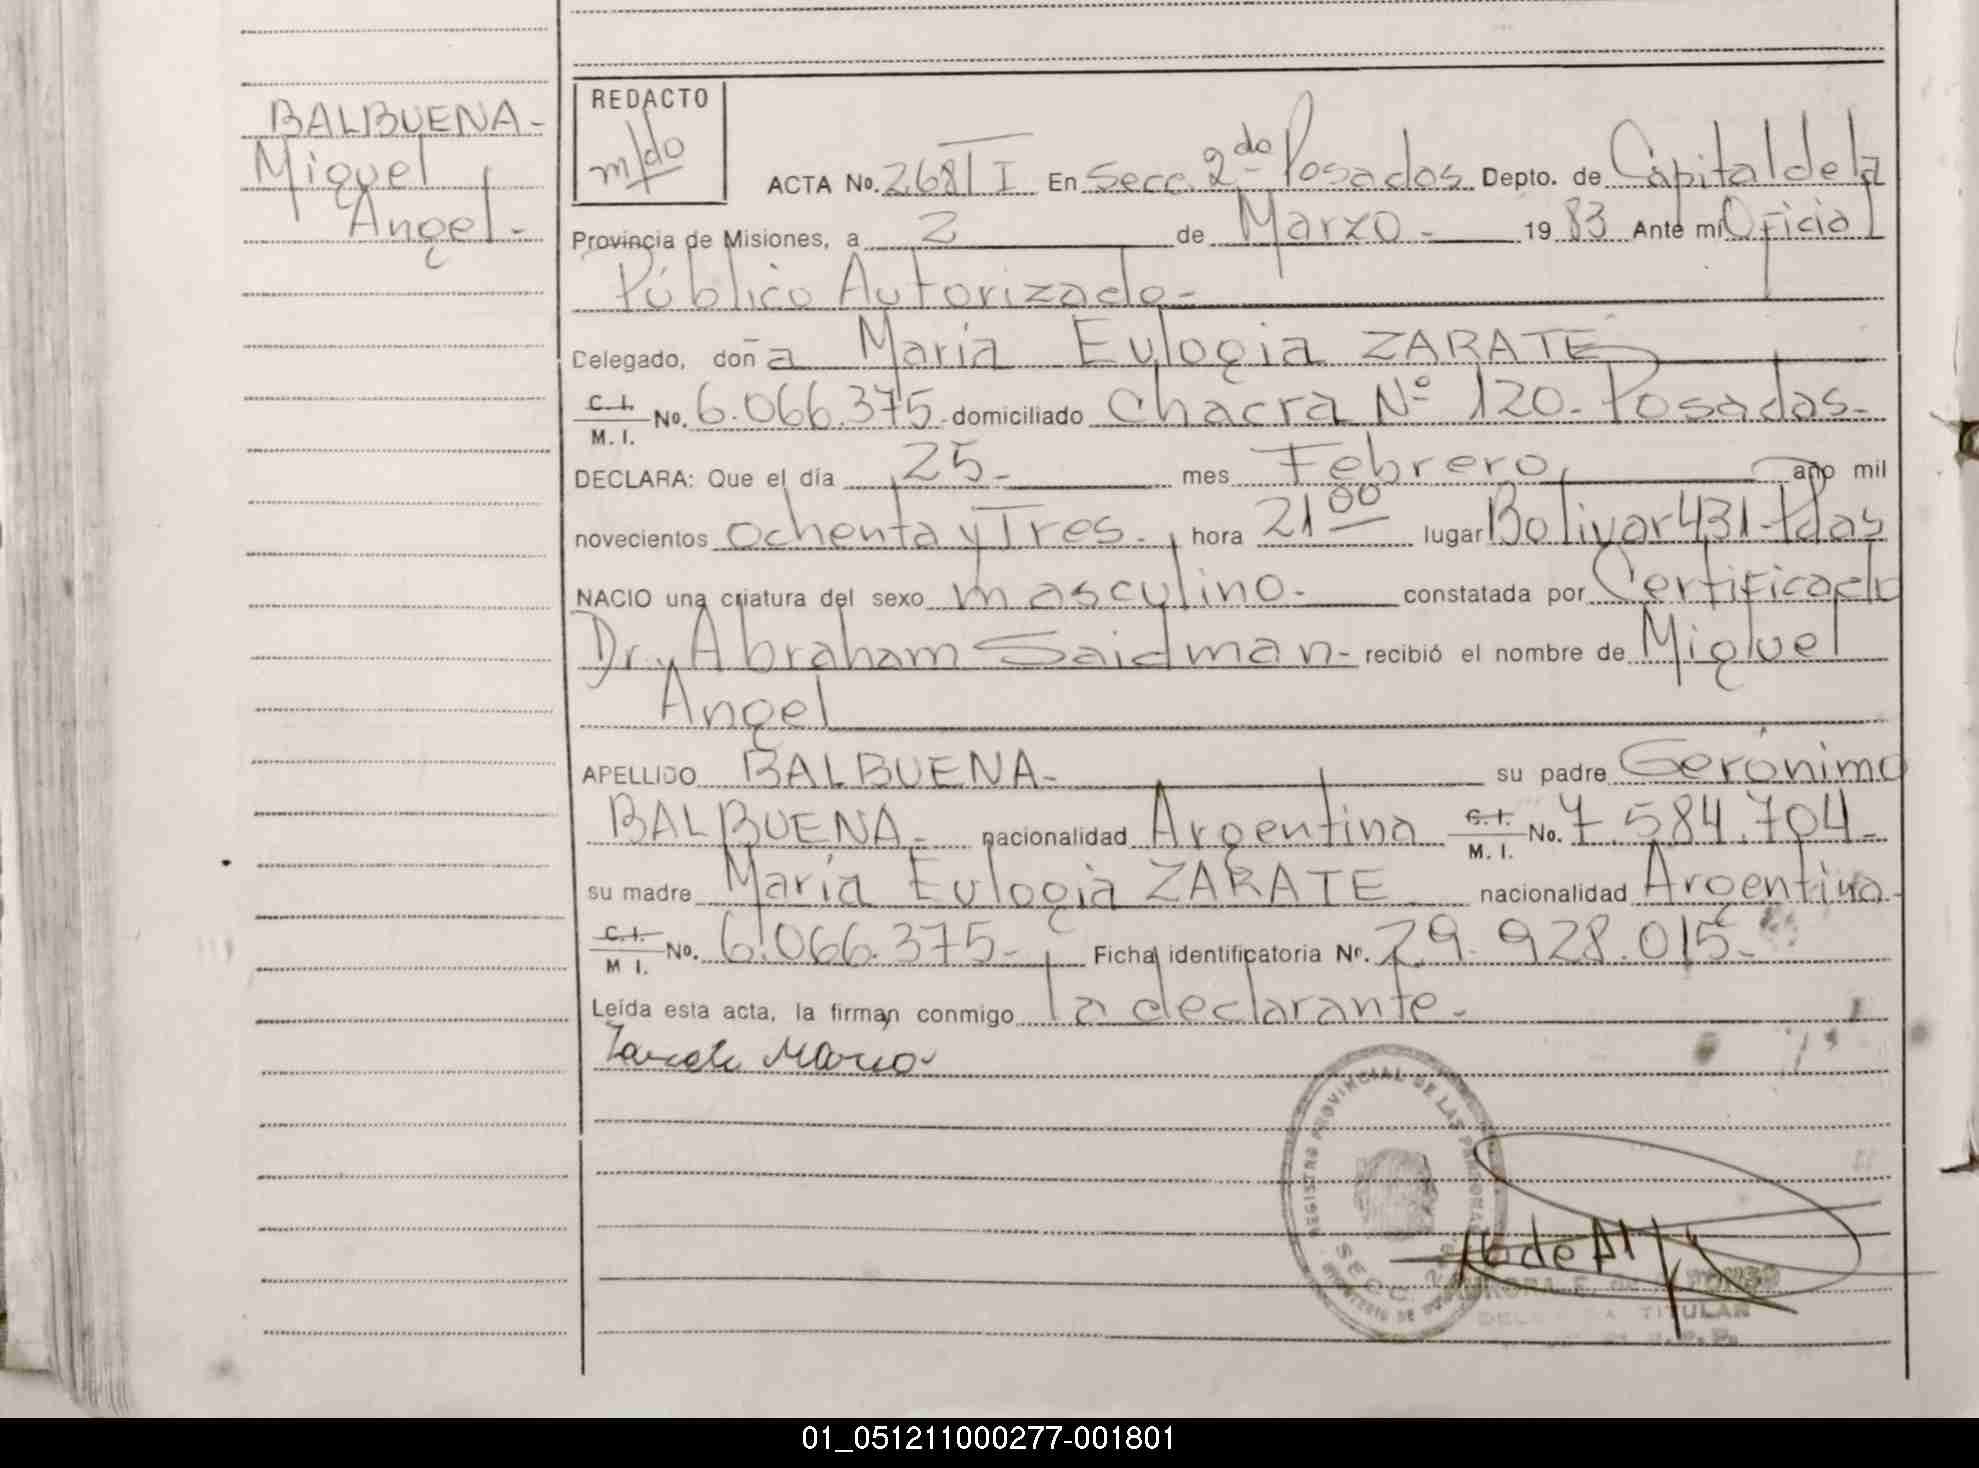 BALBUENA-
Miguel
Angel.-
REDACTO
m/do
ACTA No. 268 T I En Secc. 2do Posadas Depto. de Capital de la
Provincia de Misiones, a 2 de Marzo.- 1983 Ante mí Oficial
Público Autorizado-
Delegado, doña María Eulogia ZARATE
C. I. M. I. No. 6.066.375- domiciliado Chacra Nº 120- Posadas-
DECLARA: Que el día 25- mes Febrero, año mil
novecientos ochenta y Tres.- hora 21 00 lugar Bolivar 431-Pdas
NACIO una criatura del sexo masculino.- constatada por Certificado
Dr. Abraham Saidman- recibió el nombre de Miguel
Angel
APELLIDO BALBUENA- su padre Gerónimo
BALBUENA- nacionalidad Argentina C. I. M. I. No. 7.584.704-
su madre María Eulogia ZARATE nacionalidad Argentina-
C. I. M I. No. 6.066.375- Ficha identificatoria Nº. 29.928.015-
Leída esta acta, la firman conmigo la declarante.-
Zarate Maria
REGISTRO PROVINCIAL DE LAS PERSONAS
SECC. 2
TITULAR
01_051211000277-001801